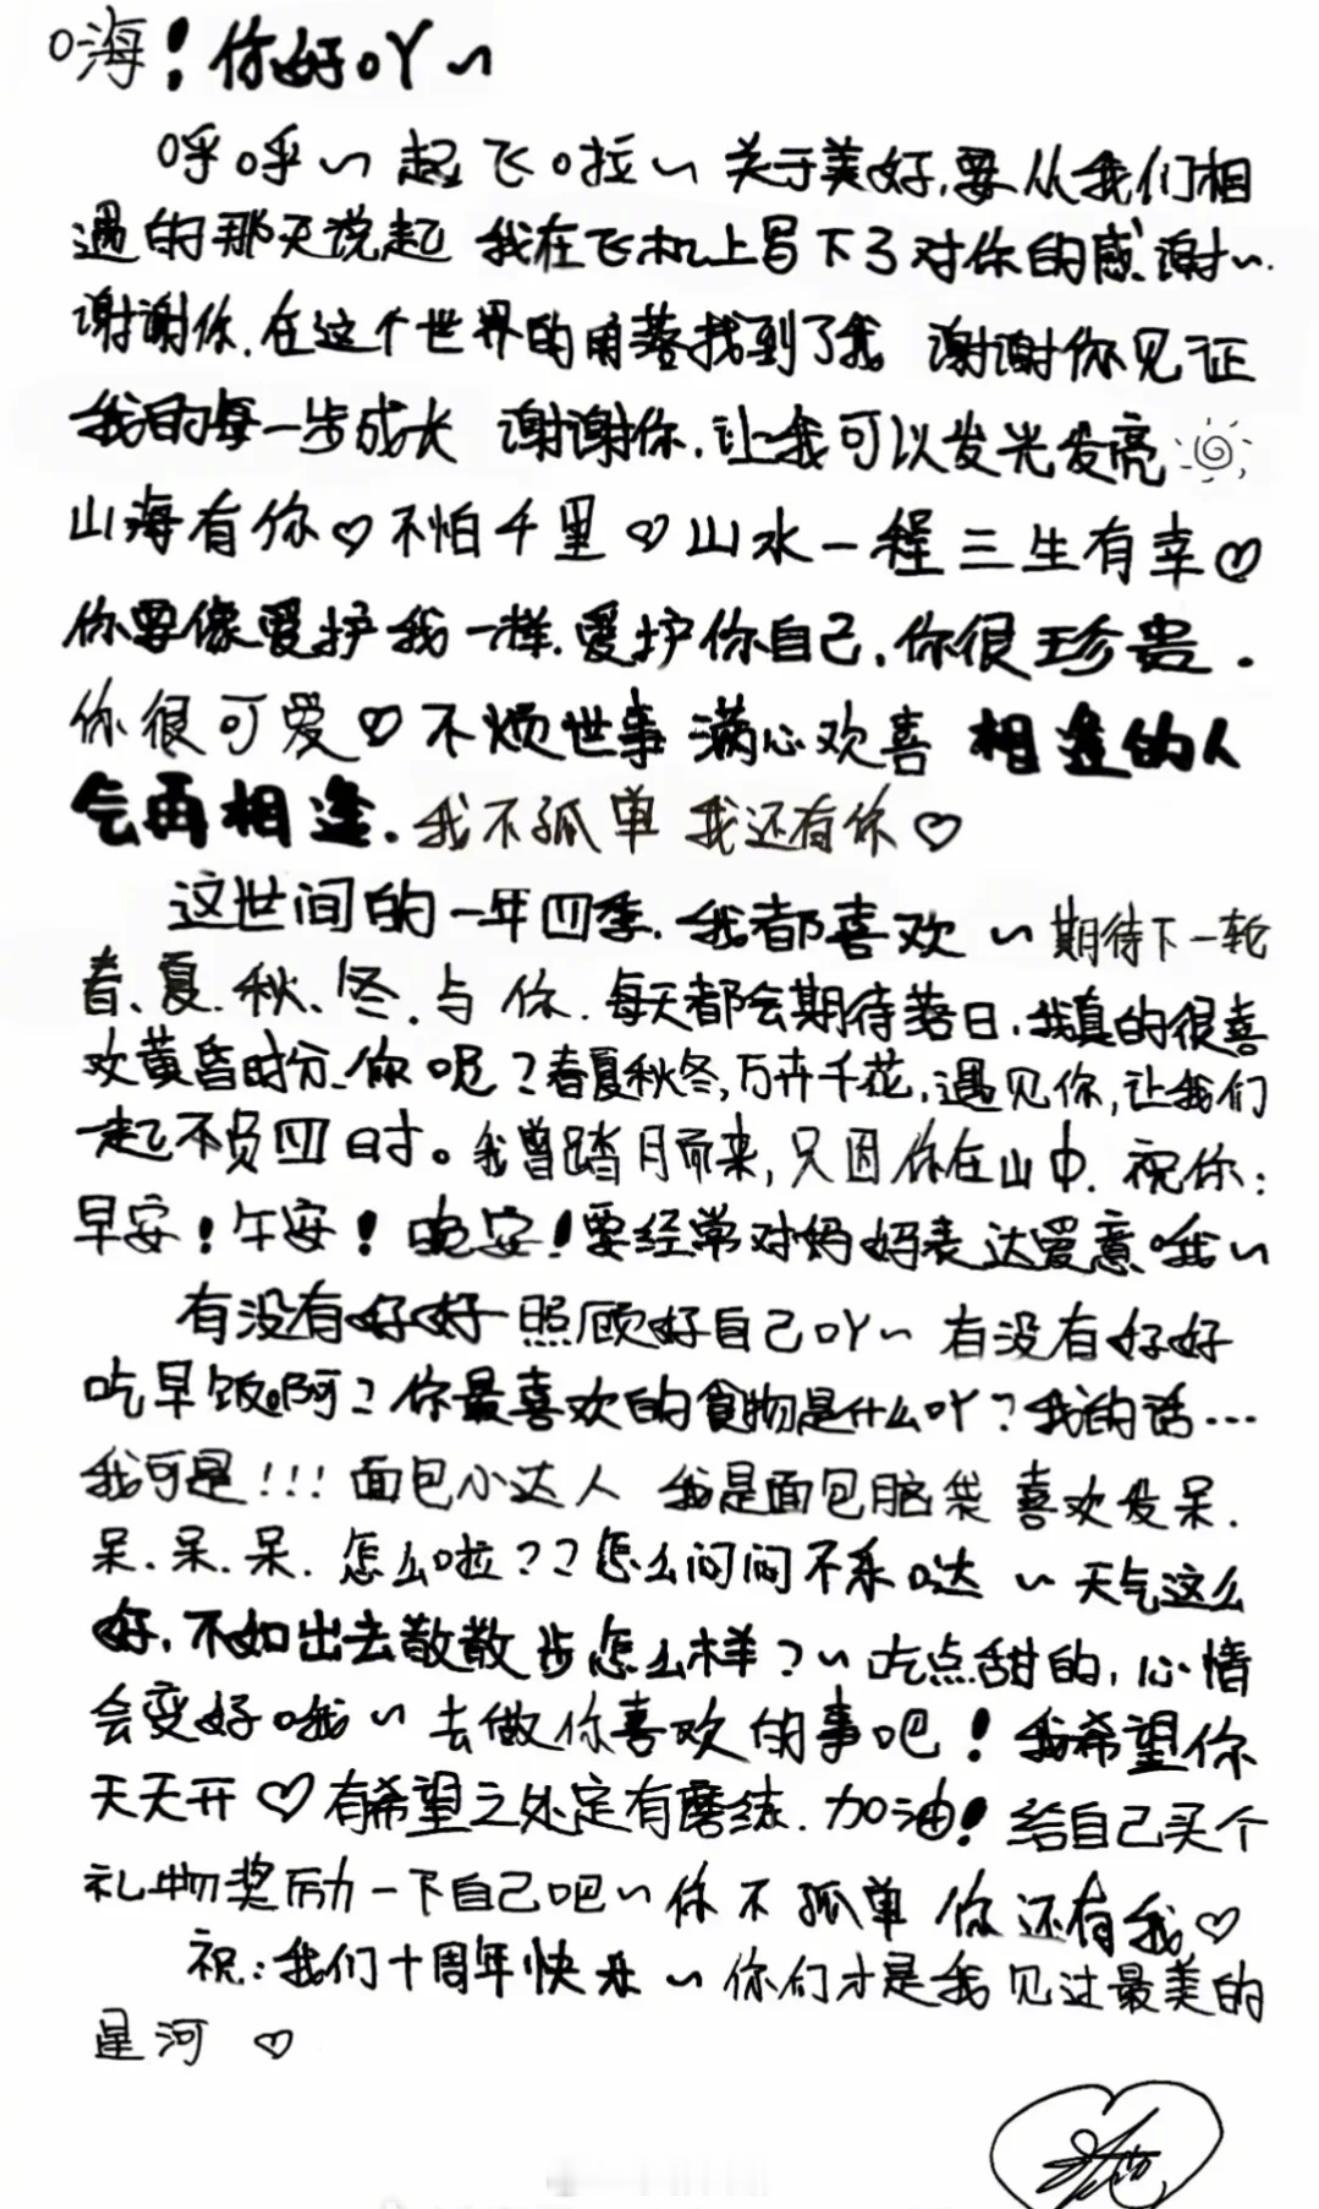 嗨！你好吖~
呼呼~起飞啦~关于美好,要从我们相
遇的那天说起 我在飞机上写下了对你的感谢~.
谢谢你.在这个世界的角落找到了我 谢谢你见证
我的每一步成长 谢谢你.让我可以发光发亮
山海有你♡不怕千里♡山水一程三生有幸♡
你要像爱护我一样.爱护你自己.你很珍贵.
你很可爱♡不烦世事 满心欢喜 相逢的人
会再相逢.我不孤单 我还有你♡
这世间的一年四季.我都喜欢~期待下一轮
春、夏.秋、冬.与你.每天都会期待落日.我真的很喜
欢黄昏时分.你呢？春夏秋冬,万卉千花,遇见你,让我们
一起不负四时。我曾踏月而来,只因你在山中.祝你:
早安！午安！晚安！要经常对妈妈表达爱意哦~
有没有好好照顾好自己吖~有没有好好
吃早饭啊？你最喜欢的食物是什么吖？我的话…
我可是!!!面包小达人 我是面包脑袋 喜欢发呆.
呆.呆.呆.怎么啦??怎么闷闷不乐哒~天气这么
好,不如出去散散步怎么样？~吃点甜的,心情
会变好哦~去做你喜欢的事吧！我希望你
天天开♡有希望之处定有磨练.加油！给自己买个
礼物奖励一下自己吧~你不孤单 你还有我♡
祝:我们十周年快乐~你们才是我见过最美的
星河 ♡